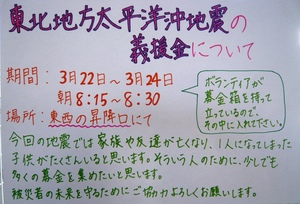 東北地方太平洋沖地震の
義援金について
期間：3月22日～3月24日
朝8:15～8:30
場所：東西の昇降口にて
ボランティアが
募金箱を持って
立っているので、
その中に入れて下さい。
今回の地震では家族や友達が亡くなり、1人になってしまった
子供がたくさんいると思います。そういう人のために、少しでも
多くの募金を集めたいと思います。
被災者の未来を守るためにご協力よろしくお願いします。